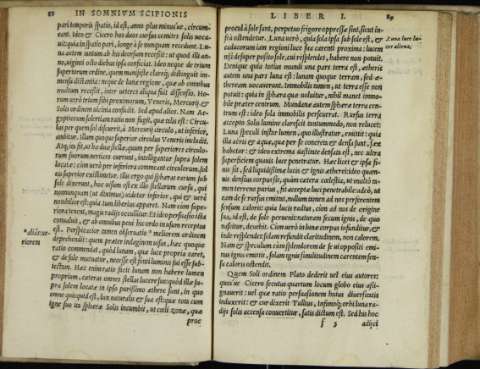 88 IN SOMNIVM SCIPIONIS
pari temporis spatio, id est, anno plus minus'ue, circum-
eant. Ideo & Cicero hos duos cursus comites solis voca-
uit quia in spatio pari, longe à se nunquam recedunt. Lu-
na autem tantum ab his deorsum recessit: ut quod illi an-
no, viginti octo diebus ipsa conficiat. Ideo neque de trium
superiorum ordine, quem manifeste clareq; distinguit im-
mensa distantia: neque de lunæ regione, quæ ab omnibus
multum recessit, inter ueteres aliqua fuit dissensio. Ho-
rum uerò trium sibi proximorum, Veneris, Mercurij, &
Solis ordinem uicinia confudit. Sed apud alios. Nam Ae-
gyptiorum solertiam ratio non fugit. quæ talis est: Circu-
lus per quem sol discurrit, à Mercurij circulo, ut inferior,
ambitur. illum quoque superior circulus Veneris includit.
Atq; ita fit, ut hæ duæ stellæ, quum per superiores circulo-
rum suorum uertices currunt, intelligantur supra solem
locatæ: cum uerò per inferiora commeant circulorum, sol
eis superior existimetur. Illis ergo qui sphæras earum sub
sole dixerunt, hoc uisum est ex illo stellarum cursu, qui
nonnunquam (ut diximus) uidetur inferior, qui & uerè
notabilior est: quia tunc liberius apparet. Nam cum supe-
riora tenent, magis radijs occuluntur. Et ideo persuasio ista
conualuit, & ab omnibus penè hic ordo in usum receptus
est. Perspicacior tamen obseruatio * meliorem ordinem
deprehendit: quem præter indaginem uisus, hæc quoque
ratio commendat, quòd lunam, quæ luce propria caret,
& de sole mutuatur, necesse est fonti luminis sui esse sub-
iectam. Hæc enim ratio facit lunam non habere lumen
proprium, cæteras omnes stellas lucere suo: quòd illæ su-
pra solem locatæ in ipso purissimo æthere sunt, in quo
omne quicquid est, lux naturalis & sua est: quæ tota cum
igne suo ita sphæræ Solis incumbit, ut cœli zonæ, quæ
proc
LIBER I. 89
procul à sole sunt, perpetuo frigore oppressæ sint, sicut in-
frà ostendetur. Luna uerò, quia sola ipsa sub sole est, &
caducorum iam regioni luce sua carenti proxima: lucem
nisi desuper posito sole, cui resplendet, habere non potuit.
Denique quia totius mundi una pars terra est, ætheris
autem una pars luna est: lunam quoque terram, sed æ-
theream uocauerunt. Immobilis tamen, ut terra esse non
potuit: quia in sphæra quæ uoluitur, nihil manet immo-
bile præter centrum. Mundanæ autem sphæræ terra cen-
trum est: ideo sola immobilis perseuerat. Rursus terra
accepto Solis lumine clarescit tantummodo, non relucet:
Luna speculi instar lumen, quo illustratur, emittit: quia
illa aëris & aquæ, quæ per se concreta & densa sunt, fæx
habetur: & ideo extrema uastitate densata est, nec ultra
superficiem quauis luce penetratur. Hæc licet & ipsa fi-
nis sit, sed liquidissimæ lucis & ignis ætherei: ideo quam-
uis densius corpus sit, quàm cætera cœlestia, ut multò ta-
men terreno purius, fit acceptæ luci penetrabile: adeò, ut
eam de se rursus emittat, nullum tamen ad nos perferentem
sensum caloris: quia lucis radius, cùm ad nos de origine
sua, id est, de sole peruenit: naturam secum ignis, de quo
nascitur, deuehit. Cùm uerò in lunæ corpus infunditur, &
inde resplendet: solam refundit claritudinem, non calorem.
Nam & speculum cum splendorem de se ui oppositi emi-
nus ignis emittit, solam ignis similitudinem carentem sen-
su caloris ostendit.
Quem Soli ordinem Plato dederit uel eius autores:
quos'ue Cicero secutus quartum locum globo eius assi-
gnauerit: uel quæ ratio persuasionem huius diuersitatis
induxerit: & cur dixerit Tullius, Infimòq; orbe luna ra-
dijs solis accensa conuertitur, satis dictum est. Sed his hoc
f 5 adijci